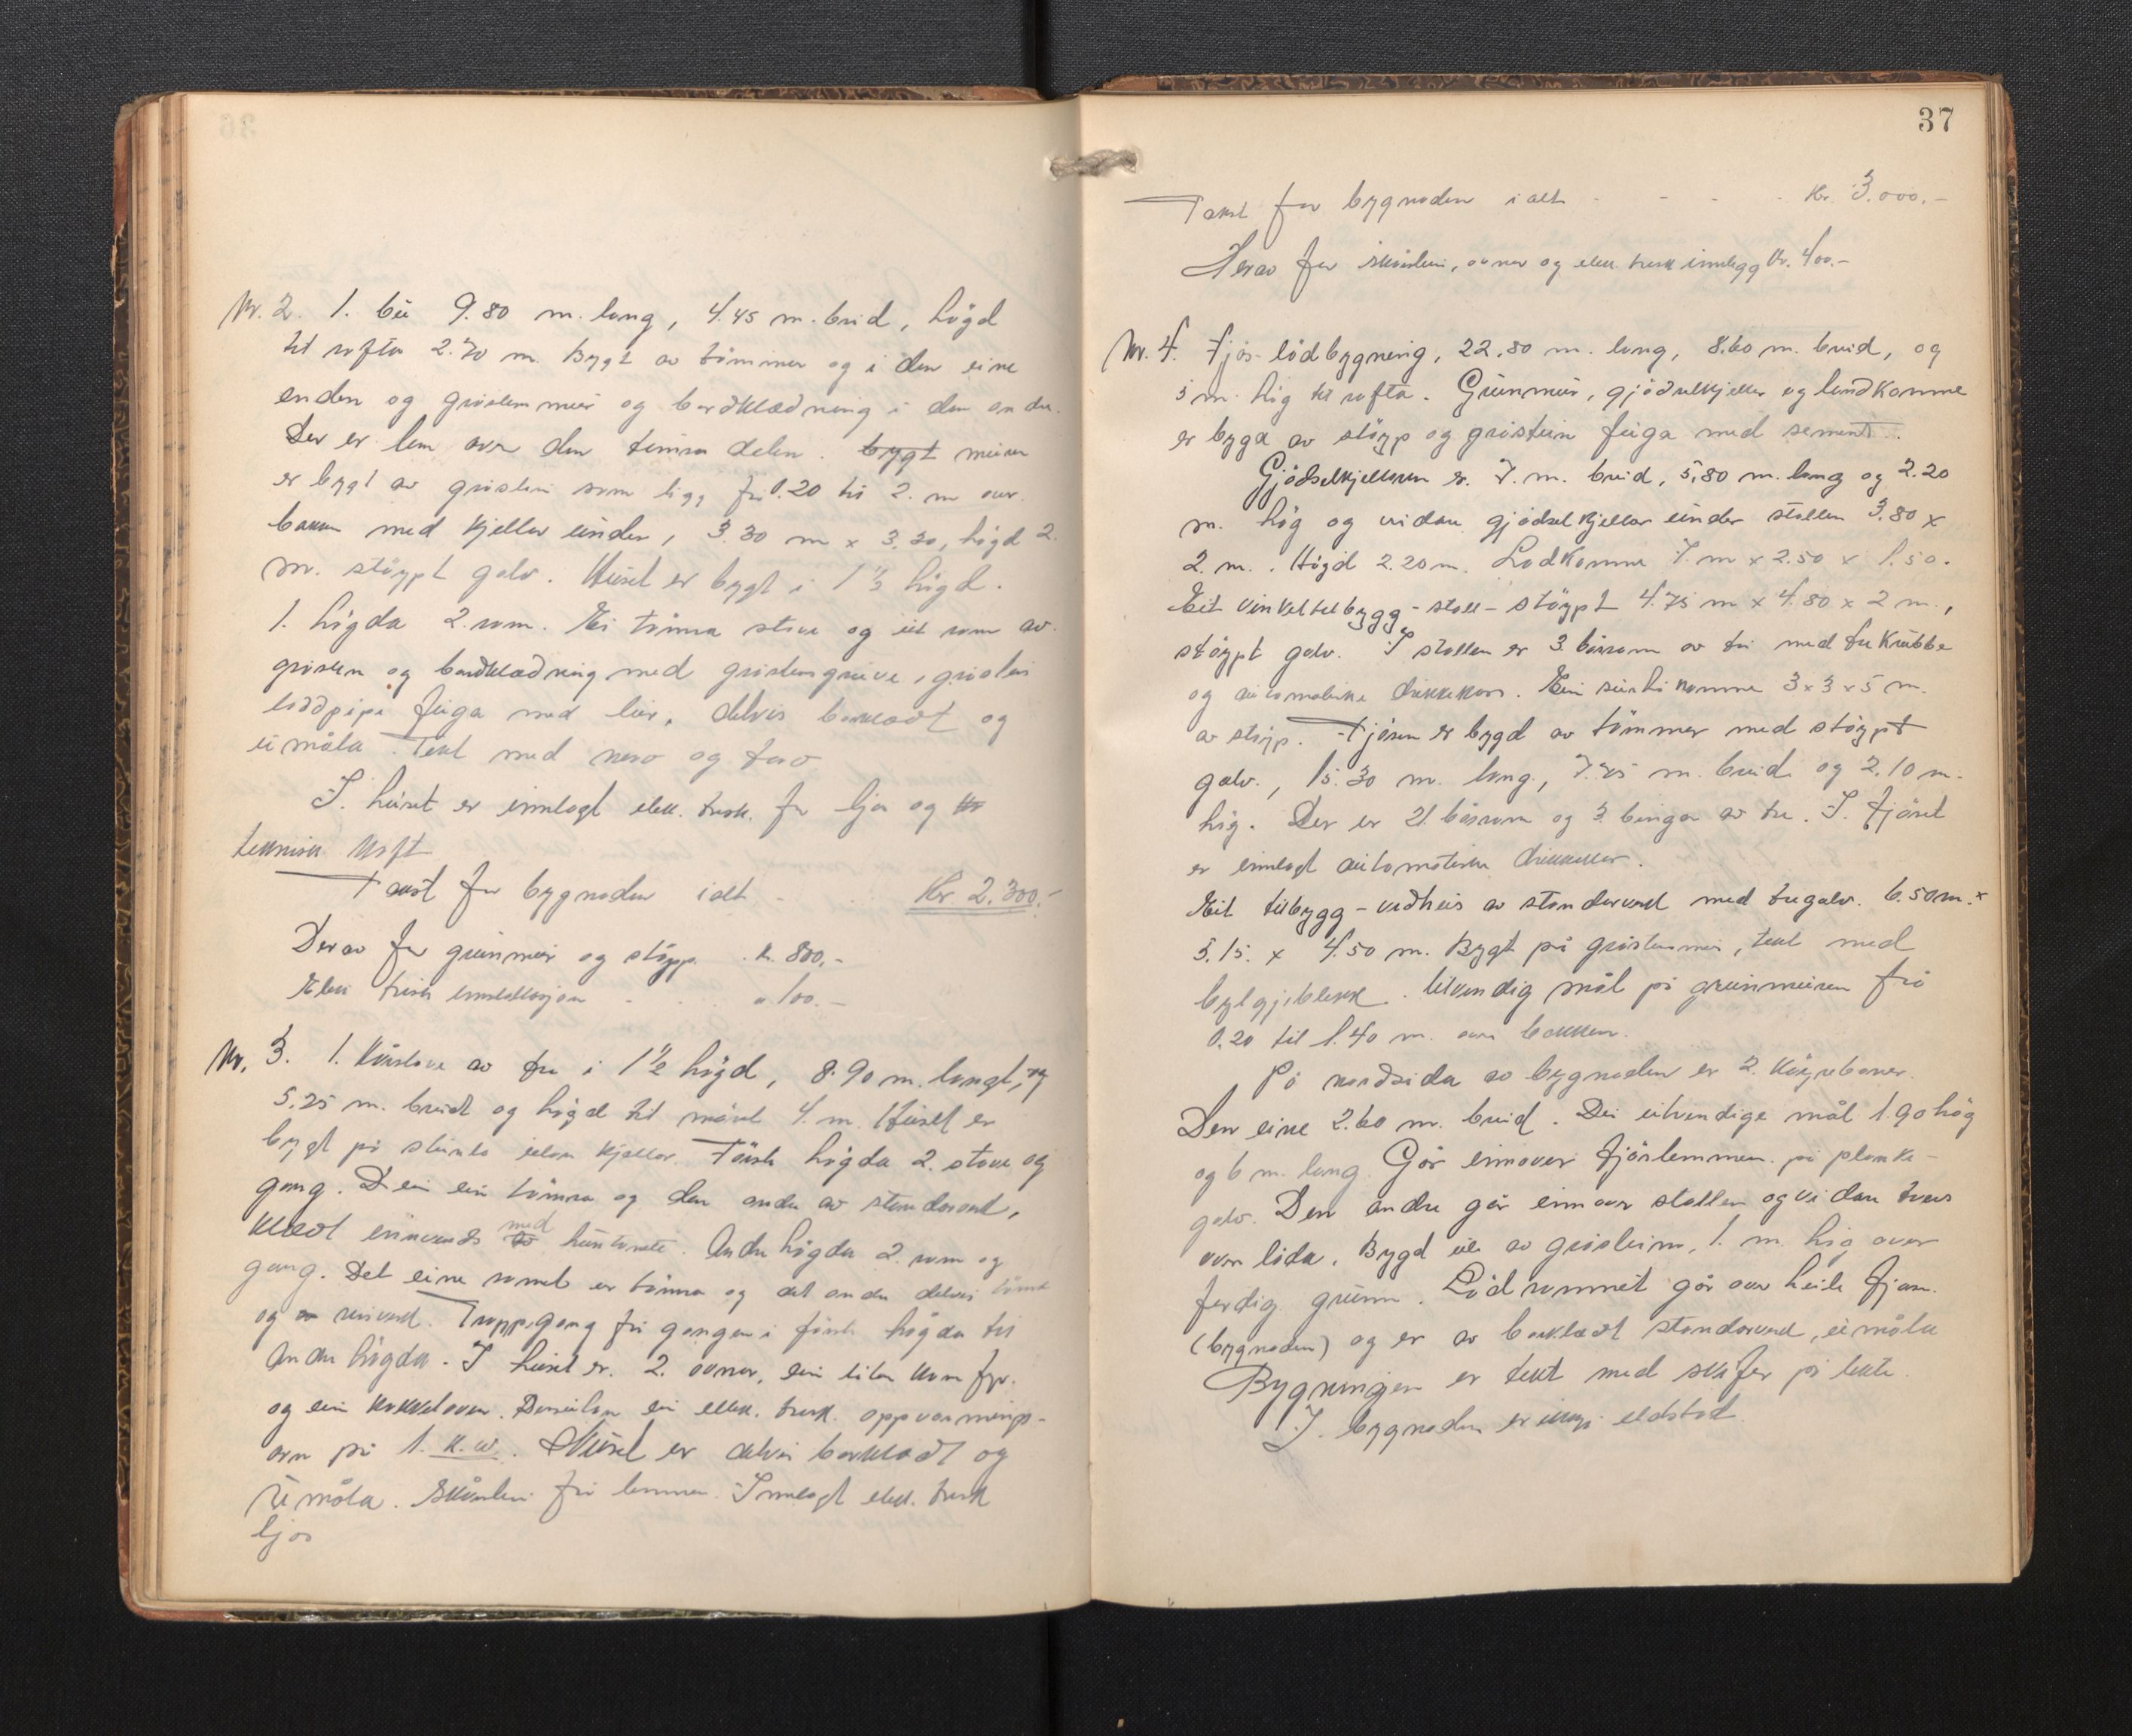 Nr. 2. 1. bu 9.80 m. lang, 4.45 m. breid, högd
til rofta 2.70 m. Bygt av tömmer og i den eine
enden og gråsteinmur og bordklædning i den andre.
Der er lem over den tømra delen. bygt muren
er bygt av gråstein som ligg frå 0.20 til 2. m over
bakken med kjellar under, 3.30 m x 3.30, högd 2.
m. stöypt golv. Huset er bygt i 1 högd.
1. högda 2. rom. Ei tömra stove og eit rom av
gråstein og bordklædning med gråsteinsgruve, gråstein
pipe fuga med leir, delvis bordklædt og
umåla. Tekt med never og torv
I huset er innlagt elek. trisk. for ljos og
teknisk kraft
Takst for bygnaden ialt - Kr. 2.300.-
Derav for grunnmur og stöypp . Kr. 800.-
Elek trisk innstallasjon - . . " 100.-
Nr. 3. 1. Kårstove av tre i 1½ högd, 8.90 m. langt, og
5.25 m. breidt og högd til möne 4. m. Huset er
bygt på uten kjellar. Första högda 2. stove og
gang. Dei ein tömra og den andre av standarverk,
klædt innvends av med huntonite. Andre högda 2. rom og
gang. Det eine romet er tömra og det andre delvis tömra
og reisverk. Trappegang frå gangen i första högda til
andre högda. I huset er. 2. ovner, ein liten
og ein kokkelovn. Desutan ein elek. trisk. oppvarmings-
ovn på 1. K.W. Huset er delvis bordklædt og
umåla. Skårstein frå lemmen. Innlagt elek. trisk
ljos
37
Takst for bygnaden ialt - - - - Kr. 3.000.-
Herav for skårstein, ovner og elek. trisk innlegg Kr. 400.-
Nr. 4. Fjös-lödbygning, 22.80 m. lang, 8.60 m. breid, og
5 m. høg til rofta. Grunmur, gjödselkjellar og landkomme
er bygd av stöyp og gråstein fuga med sement.
Gjödselkjellaren er. 7. m. breid, 5.80 m. lang og 2.20
m. høg og vidare gjödselkjellar under stallen 3.80 x
2. m. . Högd 2.20 m. Landkomme 7. m x 2.50 x 1.50.
Eit vinkeltilbygg - stall - stöypt 4.75 m x 4.80 x 2 m.,
stöypt golv. I stallen er 3. båsrom av tre med trekrubbe
og automatiske drikkekar. Ein surhökomme 3 x 3 x 5 m.
av stöyp. Fjösen er bygd av tömmer med stöypt
golv., 15.30 m. lang, 7.75 m. breid og 2.10 m.
høg. Der er 21. båsrom og 3. bingar av tre. I fjöset
er innlagt automatiske drikkekar.
Eit tilbygg - vedhus av standerverk med tregolv. 6.50 m. x
5.15. x 4.50 m. Bygt på gråsteinmur, tekt med
bylgjeblekk. Utvendig mål på grunmuren frå
0.20 til 1.40 m. over bakken.
På nordsida av bygnaden er 2. köyrebroer.
Den eine 2.60 m. breid. Dei utvendige mål 1.90 høg
og 6 m. lang. Går innover fjöslemmen på planke-
golv. Den andre går innover stallen og vidare tvers
over löda. Bygd ute av gråstein, 1. m. høg over
ferdig grunn. Lödrommet går over heile fjøsn.
(bygnaden) og er av bordklædt standerverk, umåla
Bygningen er tekt med skifer på lekte.
I bygnaden er ikkje eldstad.